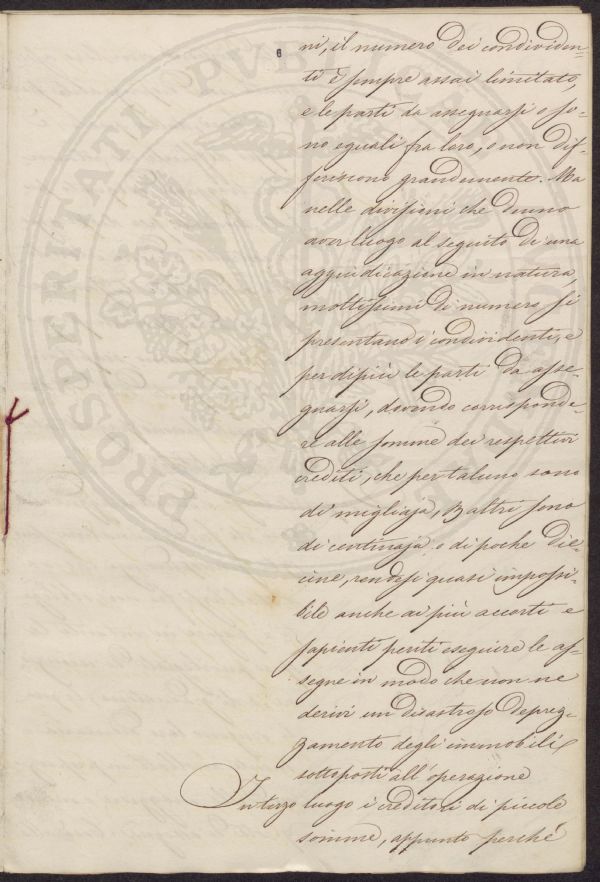 6
ni, il numero dei condividen-
ti è sempre assai limitato,
e le parti da assegnarsi o so-
no eguali fra loro, o non dif-
feriscono grandemente. Ma
nelle divisioni che denno
aver luogo al seguito di una
aggiudicazione in natura,
moltissimi di numero si
presentano i condividenti, e
per di più le parti da asse-
gnarsi, dovendo corrisponde-
re alle somme dei respettivi
crediti, che per taluno sono
di migliaja, altri sono
di centinaja o di poche die-
cine, rendesi quasi impossi-
bile anche ai più accorti e
sapienti periti eseguire le as-
segne in modo che non ne
derivi un disastroso deprez-
zamento degli immobili
sottoposti all'operazione
In terzo luogo i creditori di piccole
somme, appunto perché
PROSPERITATI PVBLICAE